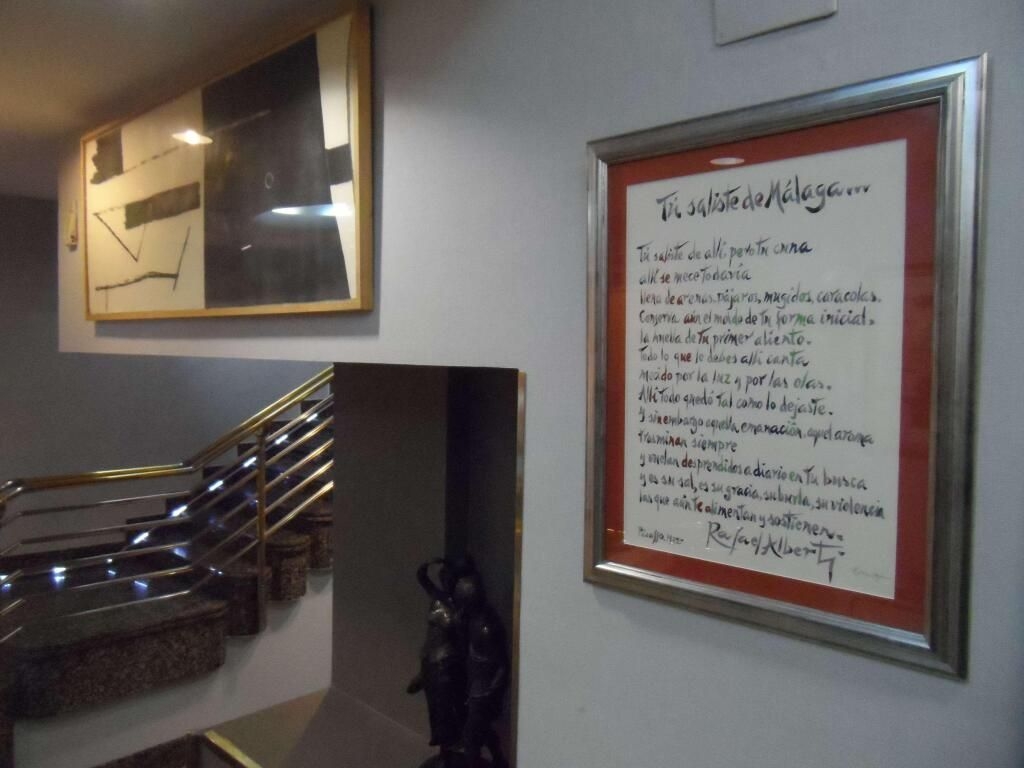 Tú saliste de Málaga...
Tú saliste de allí, pero tu cuna
allí se mece todavía
llena de arenas, pájaros, mugidos, caracolas.
Conserva aún el molde de tu forma inicial,
la huella de tu primer aliento.
Todo lo que le debes allí canta
mecido por la luz y por las olas.
Allí todo quedó tal como lo dejaste.
Y sin embargo aquella emanación, aquel aroma
trasminan siempre
y vuelan desprendidos a diario en tu busca
y es su sal, es su gracia, su burla, su violencia
las que aún te alimentan y sostienen.
Rafael Alberti